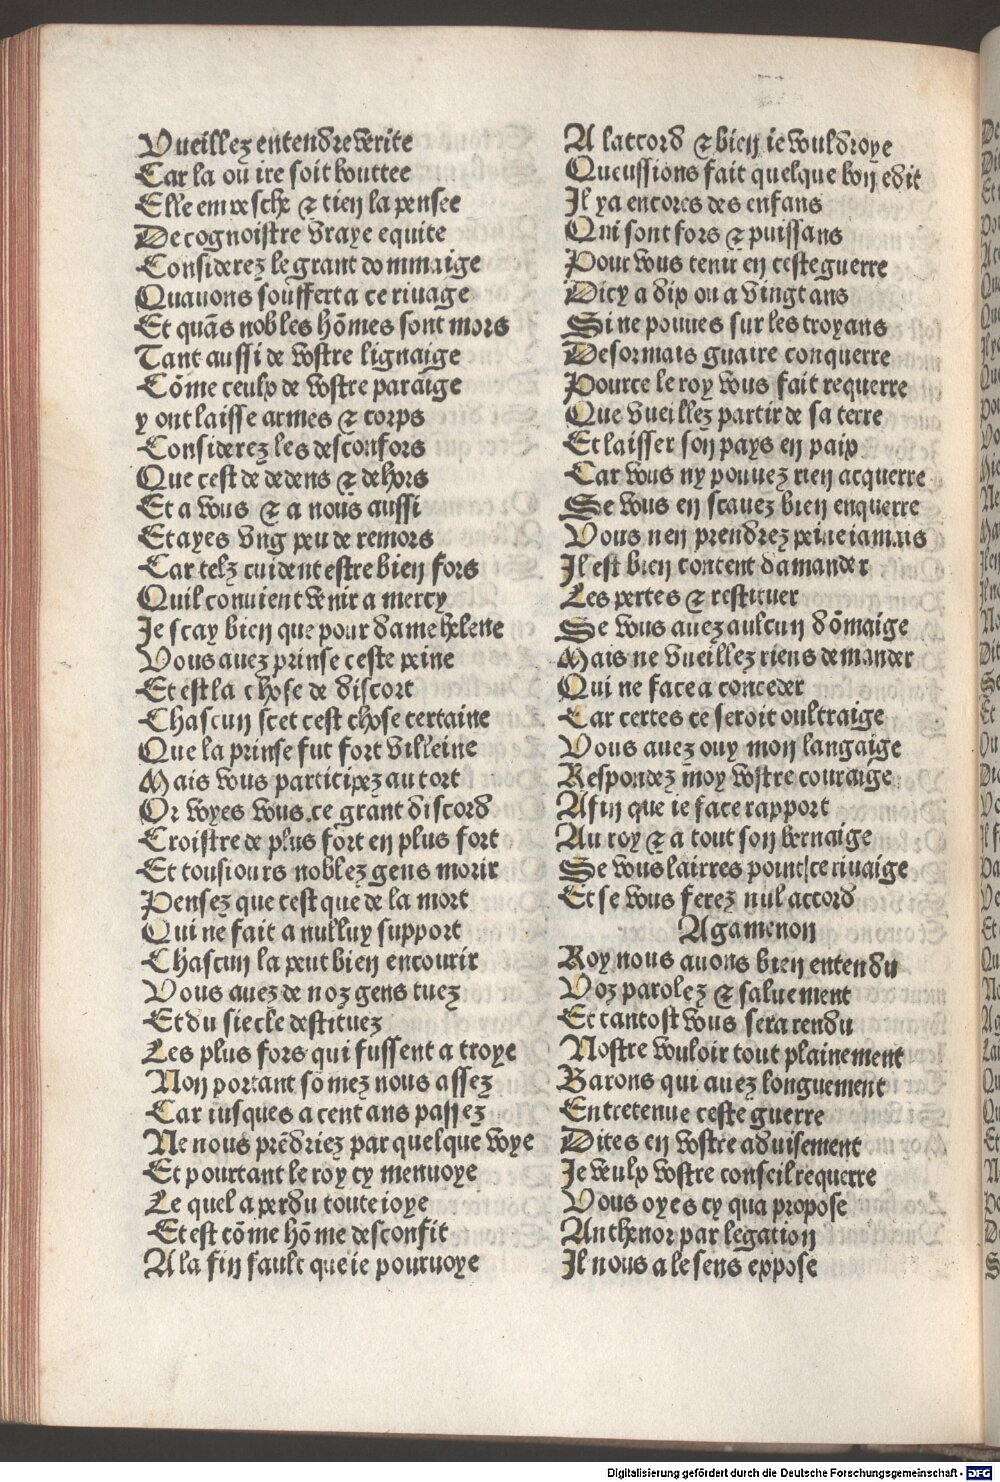 Vueillez entendre verite
Car la ou ire soit bouttee
Elle empesche & tien la pensee
De cognoistre vraye equite
Considerez le grant dommaige
Quauons souffert a ce riuage
Et quās nobles hōmes sont mors
Tant aussi de vostre lignaige
Cōme ceulx de vostre paraige
y ont laisse armes & corps
Considerez les desconfors
Que cest de dedens & dehors
Et a vous & a nous aussi
Et ayes vng peu de remors
Car telz cuident estre bien fors
Quil conuient venir a mercy
Je scay bien que pour dame helene
Vous auez prinse ceste peine
Et est la chose de discort
Chascun scet cest chose certaine
Que la prinse fut fort villeine
Mais vous participez au tort
Or voyes vous ce grant discord
Croistre de plus fort en plus fort
Et tousiours noblez gens morir
Pensez que cest que de la mort
Qui ne fait a nulluy support
Chascun la peut bien encourir
Vous auez de noz gens tuez
Et du siecle destituez
Les plus fors qui fussent a troye
Non portant sōmez nous assez
Car iusques a cent ans passez
Ne nous prēdriez par quelque voye
Et pourtant le roy cy menuoye
Le quel a perdu toute ioye
Et est cōme hōme desconfit
A la fin fault que ie pouruoye
A laccord & bien ie vouldroye
Queussions fait quelque bon edit
Il y a encores des enfans
Qui sont fors & puissans
Pour vous tenir en ceste guerre
Dicy a dix ou a vingt ans
Si ne pouues sur les troyans
Desormais guaire conquerre
Pource le roy vous fait requerre
Que vueillez partir de sa terre
Et laisser son pays en paix
Car vous ny pouuez rien acquerre
Se vous en scauez bien enquerre
Vous nen prendrez peine iamais
Il est bien content damander
Les pertes & restituer
Se vous auez aulcun dōmaige
Mais ne vueillez riens demander
Qui ne face a conceder
Car certes ce seroit oultraige
Vous auez ouy mon langaige
Respondez moy vostre couraige
Afin que ie face rapport
Au roy & a tout son bernaige
Se vous lairres point ce riuaige
Et se vous ferez nul accord
Agamenon
Roy nous auons bien entendu
Voz parolez & saluement
Et tantost vous sera rendu
Nostre vouloir tout plainement
Barons qui auez longuement
Entretenue ceste guerre
Dites en vostre aduisement
Je veulx vostre conseil requerre
Vous oyes cy qua propose
Anthenor par legation
Il nous a le sens expose
Digitalisierung gefördert durch die Deutsche Forschungsgemeinschaft - DFG